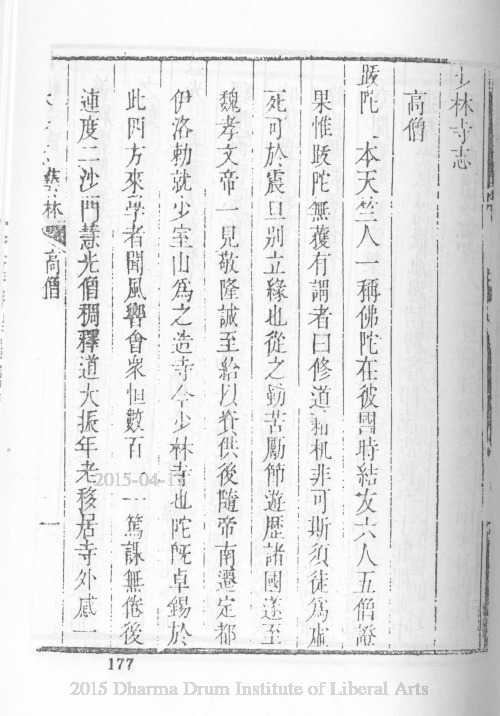 少林寺志
高僧
跋陀 本天竺人一稱佛陀在彼國時結友六人五僧證
果惟跋陀無獲有謂者曰修道藉机非可斯須徒為虛
死可於震旦別立緣也從之勤苦勵節遊歷諸國遂至
魏孝文帝一見敬隆誠至給以飬供後隨帝南遷定都
伊洛勅就少室山為之造寺今少林寺也陀旣卓錫於
此四方來學者聞風響會眾恒數百一一篤課無倦後
連度二沙門慧光僧稠釋道大振年老移居寺外感一
林 高僧
一
177
2015-04-17
2015 Dharma Drum Institute of Liberal Arts